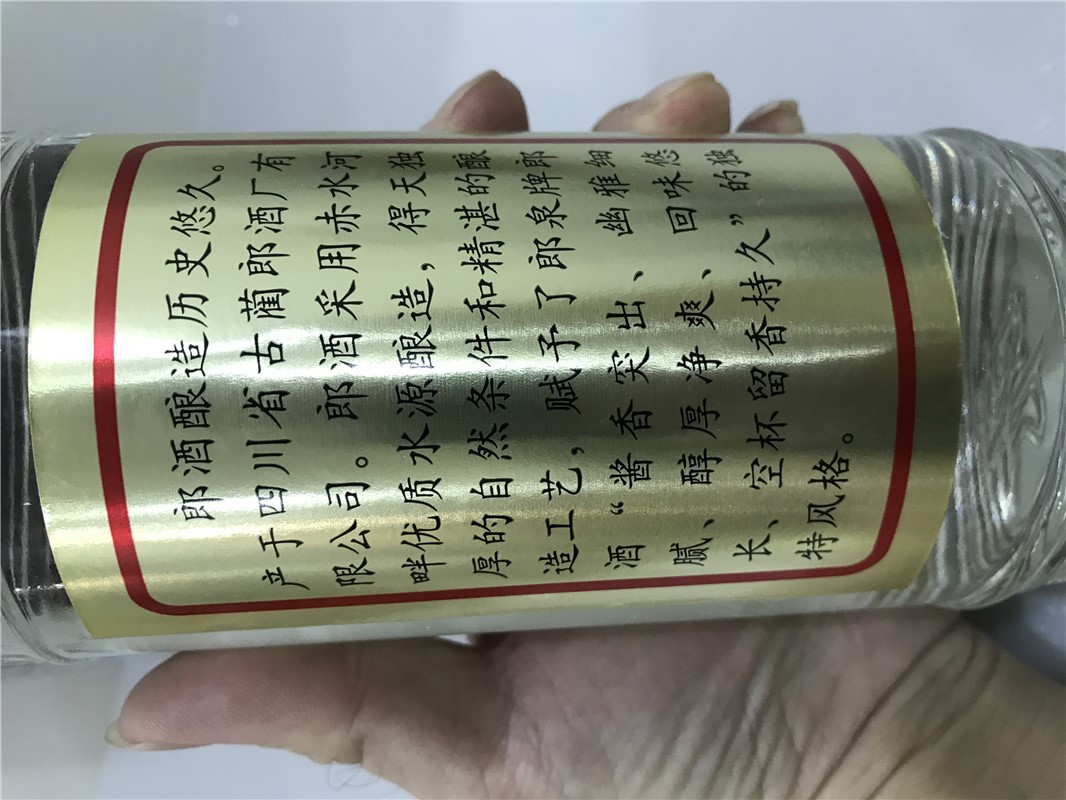 郎酒酿造历史悠久。
产于四川省古蔺郎酒厂有
限公司。郎酒采用赤水河
畔优质水源酿造，得天独
厚的自然条件和精湛的酿
造工艺，赋予了郎泉牌郎
酒“酱香突出、幽雅细
腻、醇厚净爽、回味悠
长、空杯留香持久”的独
特风格。